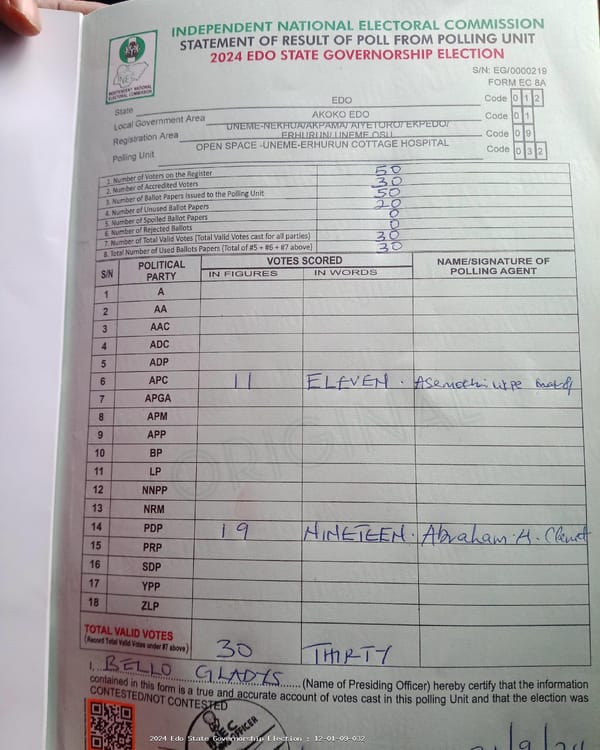 INDEPENDENT NATIONAL ELECTORAL COMMISSION
STATEMENT OF RESULT OF POLL FROM POLLING UNIT
2024 EDO STATE GOVERNORSHIP ELECTION
INDEPENDENT NATIONAL
ELECTORAL COMMISSION
S/N: EG/0000219
FORM EC 8A
State EDO Code 0 1 2
Local Government Area AKOKO EDO Code 0 1
Registration Area UNEME-NEKHUA/AKPAMA/ AIYETORO/ EKPEDO/ ERHURUN/ UNEME OSU Code 0 9
Polling Unit OPEN SPACE -UNEME-ERHURUN COTTAGE HOSPITAL Code 0 3 2
1. Number of Voters on the Register 50
2. Number of Accredited Voters 30
3. Number of Ballot Papers Issued to the Polling Unit 50
4. Number of Unused Ballot Papers 20
5. Number of Spoiled Ballot Papers 0
6. Number of Rejected Ballots 0
7. Number of Total Valid Votes (Total Valid Votes cast for all parties) 30
8. Total Number of Used Ballots Papers (Total of #5 + #6 + #7 above) 30
S/N POLITICAL PARTY VOTES SCORED NAME/SIGNATURE OF POLLING AGENT
IN FIGURES IN WORDS
1 A
2 AA
3 AAC
4 ADC
5 ADP
6 APC 11 ELEVEN.
7 APGA
8 APM
9 APP
10 BP
11 LP
12 NNPP
13 NRM
14 PDP 19 NINETEEN. Abraham. H.
15 PRP
16 SDP
17 YPP
18 ZLP
ORIGINAL
TOTAL VALID VOTES
(Record Total Valid Votes under #7 above) 30 THIRTY
I, BELLO GLADYS (Name of Presiding Officer) hereby certify that the information
contained in this form is a true and accurate account of votes cast in this polling Unit and that the election was
CONTESTED/NOT CONTESTED
2024 Edo State Governorship Election : 12-01-09-032